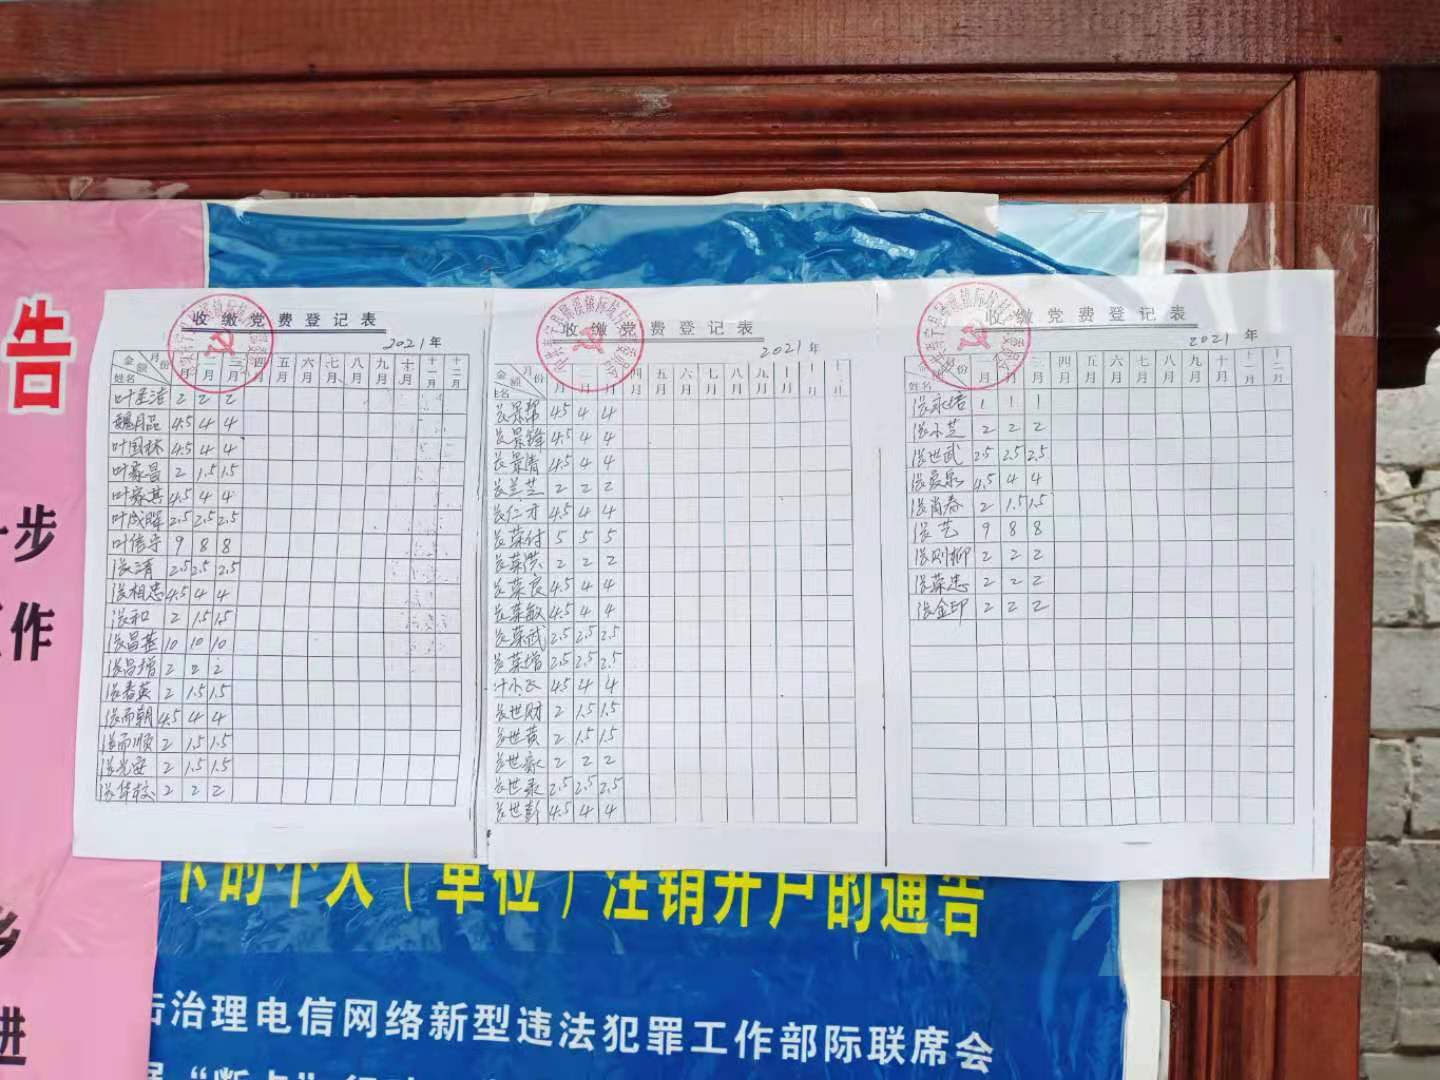 告
步
作
乡
进
收缴党费登记表
2021年
金额 月份 姓名 月 月 三月 四月 五月 六月 七月 八月 九月 十月 十一月 十二月
2 2 2
魏月品 4.5 4 4
叶国林 4.5 4 4
叶家昌 2 1.5 1.5
叶家其 4.5 4 4
叶成晖 2.5 2.5 2.5
叶信守 9 8 8
张清 2.5 2.5 2.5
张相忠 4.5 4 4
张和 2 1.5 1.5
张昌基 10 10 10
张昌增 2 2 2
张春英 2 1.5 1.5
张而朝 4.5 4 4
张而顺 2 1.5 1.5
张光安 2 1.5 1.5
张华校 2 2 2
收缴党费登记表
2021年
金额 月份 姓名 月 二月 三月 四月 五月 六月 七月 八月 九月 十月
张景帮 4.5 4 4
张景锋 4.5 4 4
张景清 4.5 4 4
张兰芝 2 2 2
张仁才 4.5 4 4
张荣付 5 5 5
张荣洪 2 2 2
张荣良 4.5 4 4
张荣敏 4.5 4 4
张荣武 2.5 2.5 2.5
张荣增 2.5 2.5 2.5
叶小飞 4.5 4 4
张世财 2 1.5 1.5
张世黄 2 1.5 1.5
张世 2 2 2
张世录 2.5 2.5 2.5
张世彭 4.5 4 4
收缴党费登记表
2021年
金额 月份 姓名 月 月 三月 四月 五月 六月 七月 八月 九月 十月 十一月 十二月
张永培 1 1 1
张小芝 2 2 2
张世武 2.5 2.5 2.5
张爱乐 4.5 4 4
张肖春 2 1.5 1.5
张艺 9 8 8
张则柳 2 2 2
张荣忠 2 2 2
张金印 2 2 2
卡的个人（单位）注销开户的通告
击治理电信网络新型违法犯罪工作部际联席会